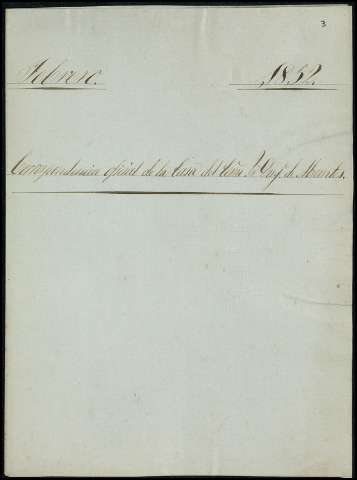 3
Febrero. 1852.
Correspondencia oficial de la Casa del Exmo. Sr. Duq. de